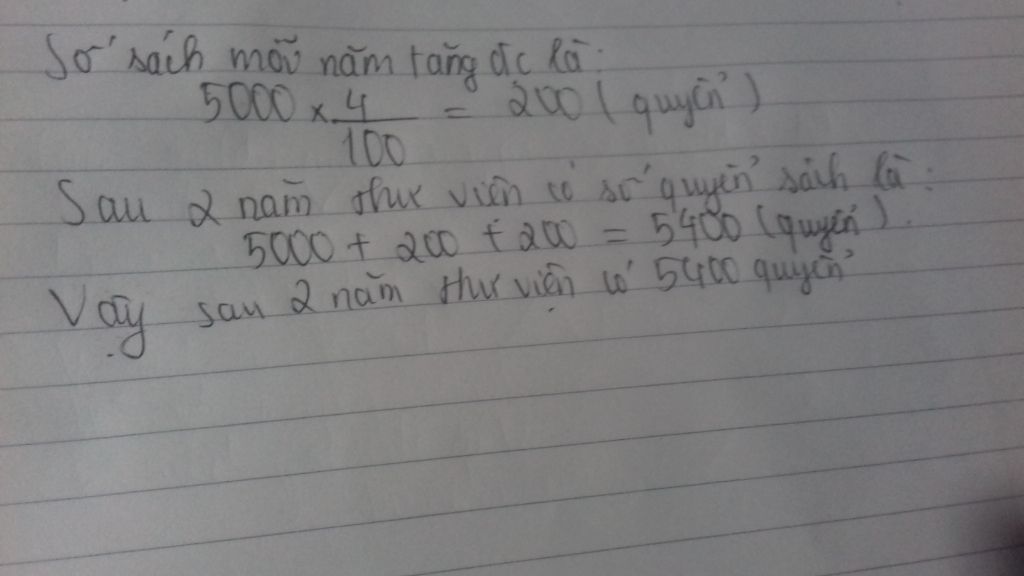 Số sách mỗi năm tăng đc là:
5000 × 4/100 = 200 (quyển)
Sau 2 năm thư viện có số quyển sách là:
5000 + 200 + 200 = 5400 (quyển).
Vậy sau 2 năm thư viện có 5400 quyển